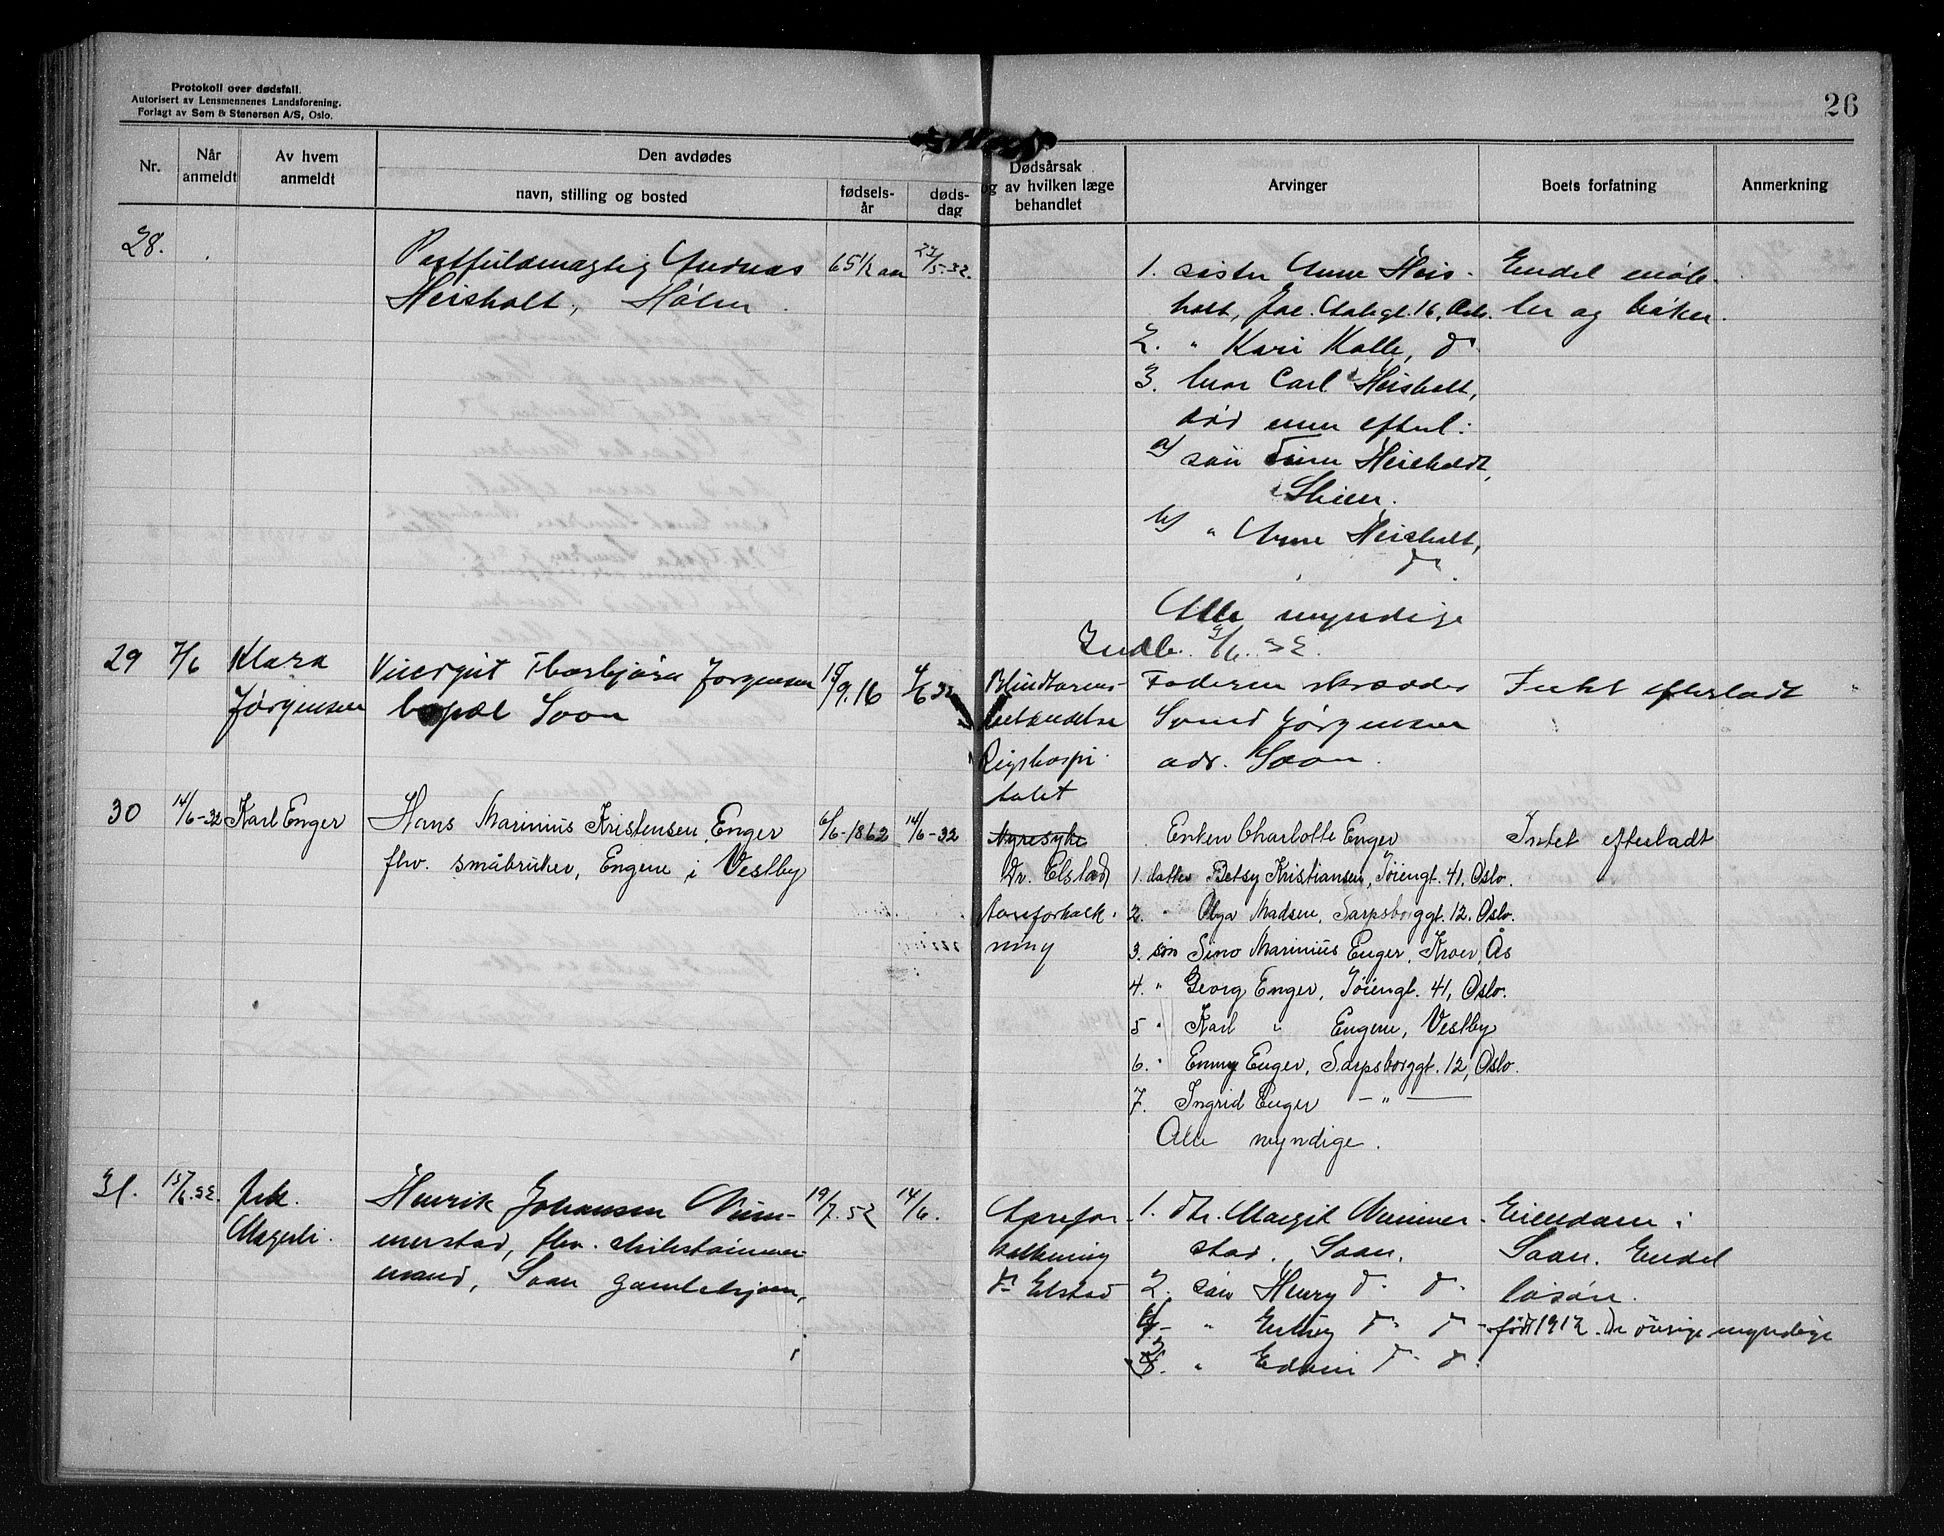 Protokoll over dødsfall.
Autorisert av Lensmennenes Landsforening.
Forlagt av Sem & Stenersen A/S, Oslo.
26
Nr.
Når anmeldt
Av hvem anmeldt
Den avdødes
navn, stilling og bosted
fødsels-år
døds-dag
Dødsårsak
og av hvilken læge
behandlet
Arvinger
Boets forfatning
Anmerkning
28.
Postfuldmægtig Andreas
Heisholt, Hølen
65½ aar
27/5-32.
1. søster Anne Heis-
holt, Jac. Aalsgt. 16, Oslo.
2. " Kari Kolle, do
3. bror Carl Heisholt,
død men efterl:
a) søn Heisholdt,
Skien.
b) " Arne Heisholt,
do
Alle myndige
Indb. 9/6 32.
Endel møb-
ler og bøker.
29
7/6
Klara
Jørgensen
Visergut Thorbjørn Jørgensen
bopæl Soon
17/9.16
4/6 32
Blindtarms-
betændelse
Rigshospi
talet
Faderen skrædder
Svend Jørgensen
adr. Soon.
Intet efterladt
30
14/6-32
Karl Enger
Hans Marinius Kristensen Enger
fhv. småbruker, Engene i Vestby
6/6-1862
14/6-32
Nyresyke
Dr. Elstad
Aareforkalk-
ning
Enken Charlotte Enger
1. datter Betsy Kristiansen, Tøiengt. 41, Oslo.
2. " Olga Madsen, Sarpsborggt. 12, Oslo.
3. søn Simo Marinius Enger, Kroer, Ås
4. " Georg Enger, Tøiengt. 41, Oslo.
5 " Karl " Engene, Vestby
6. " Enny Enger, Sarpsborggt. 12, Oslo.
7. Ingrid Enger — " —
Alle myndige.
Intet efterladt
31.
15/6.32.
frk.
Magerli.
Henrik Johansen Wim-
merstad, fhv. skibstømmer-
mand, Soon gamlehjem,
19/7.52
14/6.
Aarefor-
kalkning
dr Elstad
1. dtr. Margit Wimmer-
stad. Soon.
2. søn Henry do. do.
4 - " Erling do do -
3. " Edvin do do.
Eiendom i
Soon. Endel
løsøre.
født 1912. De øvrige myndige